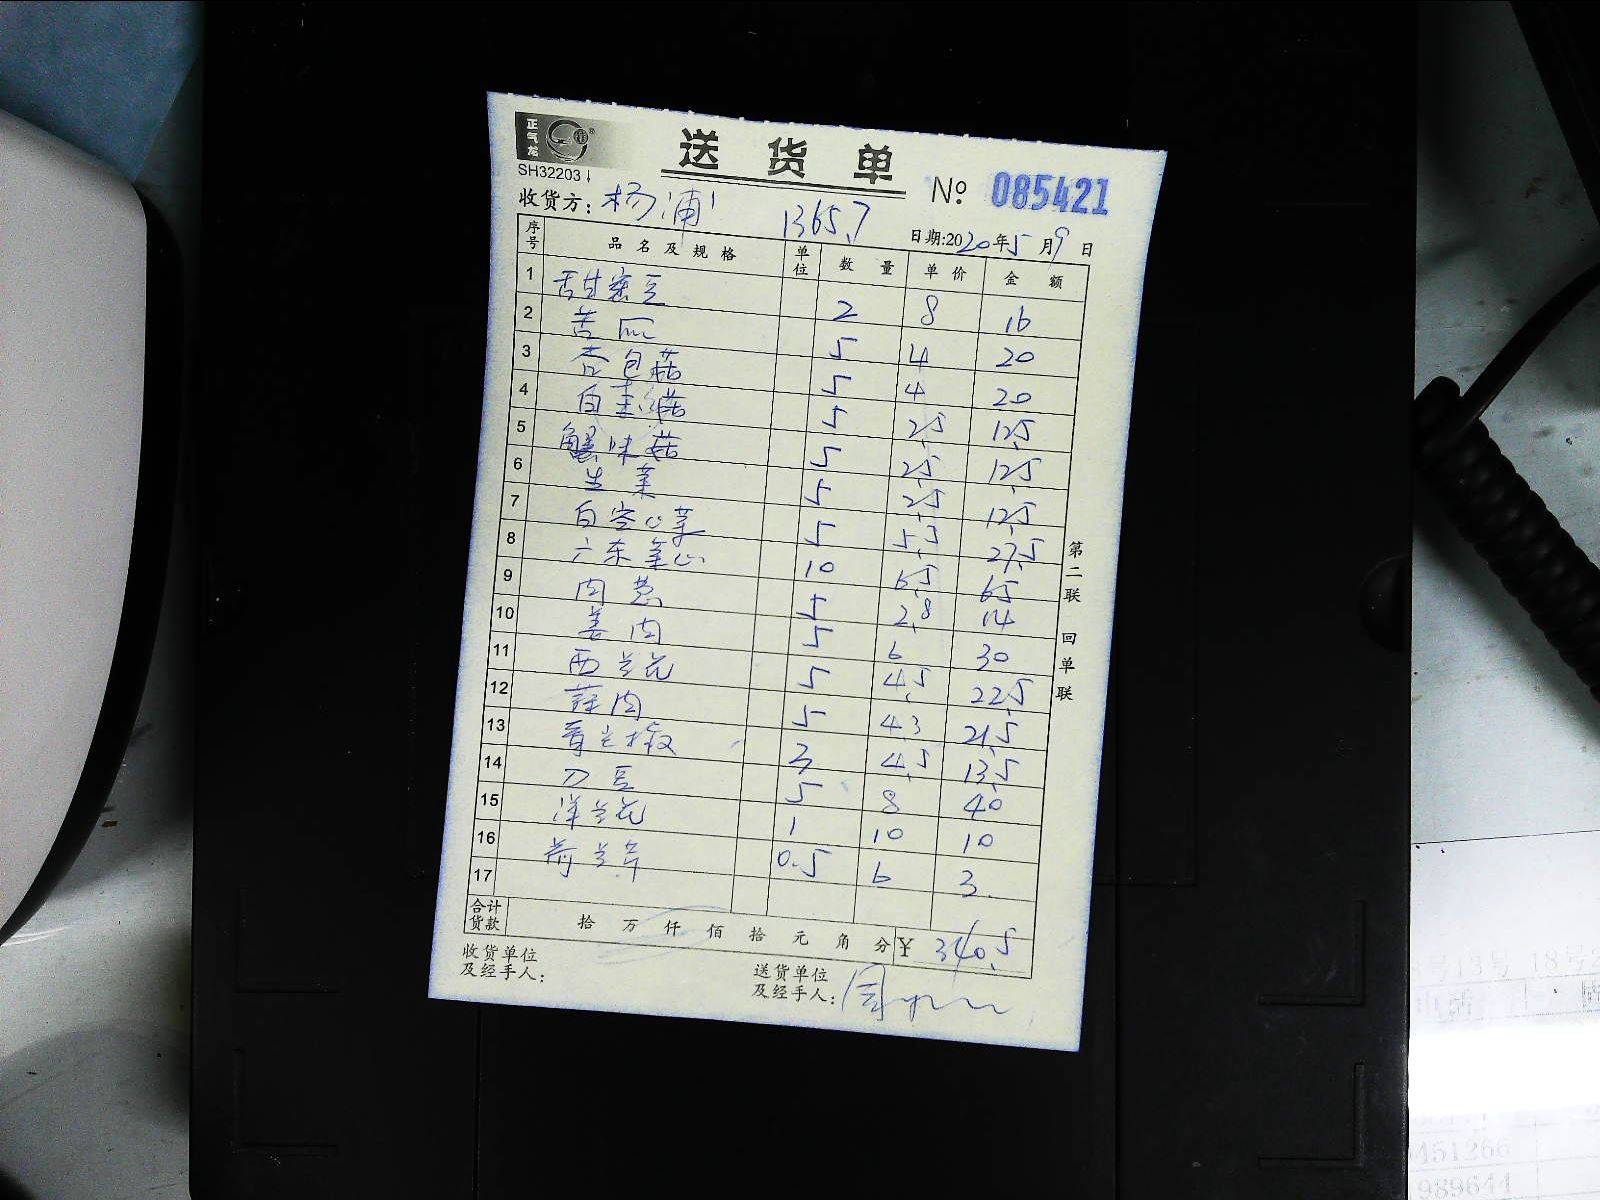 正气龙
SH32203
送 货 单
№ 085421
收货方: 杨浦 1365.7
日期:2020年5月9日
序号 品名及规格 单位 数量 单价 金额
1 舌甘蜜豆 2 8 16
2 苦瓜 5 4 20
3 杏包菇 5 4 20
4 白玉菇 5 2.5 12.5
5 蟹味菇 5 2.5 12.5
6 生菜 5 2.5 12.5
7 白空心菜 5 5.5 27.5
8 广东菜心 10 6.5 65
9 肉葱 5 2.8 14
10 姜肉 5 6 30
11 西兰花 5 4.5 22.5
12 蒜肉 5 4.3 21.5
13 青尖椒 3 4.5 13.5
14 刀豆 5 8 40
15 洋兰花 1 10 10
16 荷兰芹 0.5 6 3.
17
合计货款 拾 万 仟 佰 拾 元 角 分 ¥ 340.5
收货单位及经手人:
送货单位及经手人: 周
第二联 回单联
451266
989644